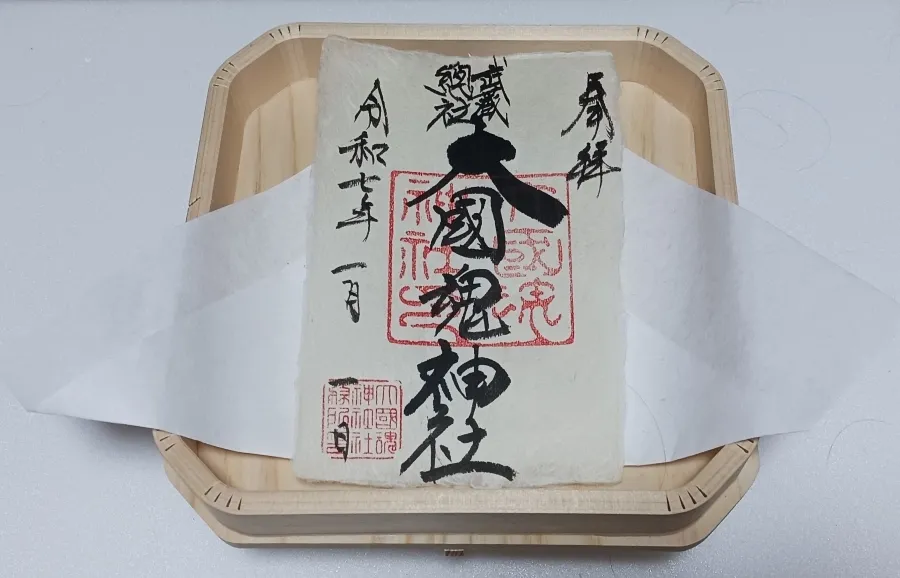 奉拝
武蔵
總社
大國魂神社
令和七年一月一日
大國魂
神社印
大國魂
神社社
務所印